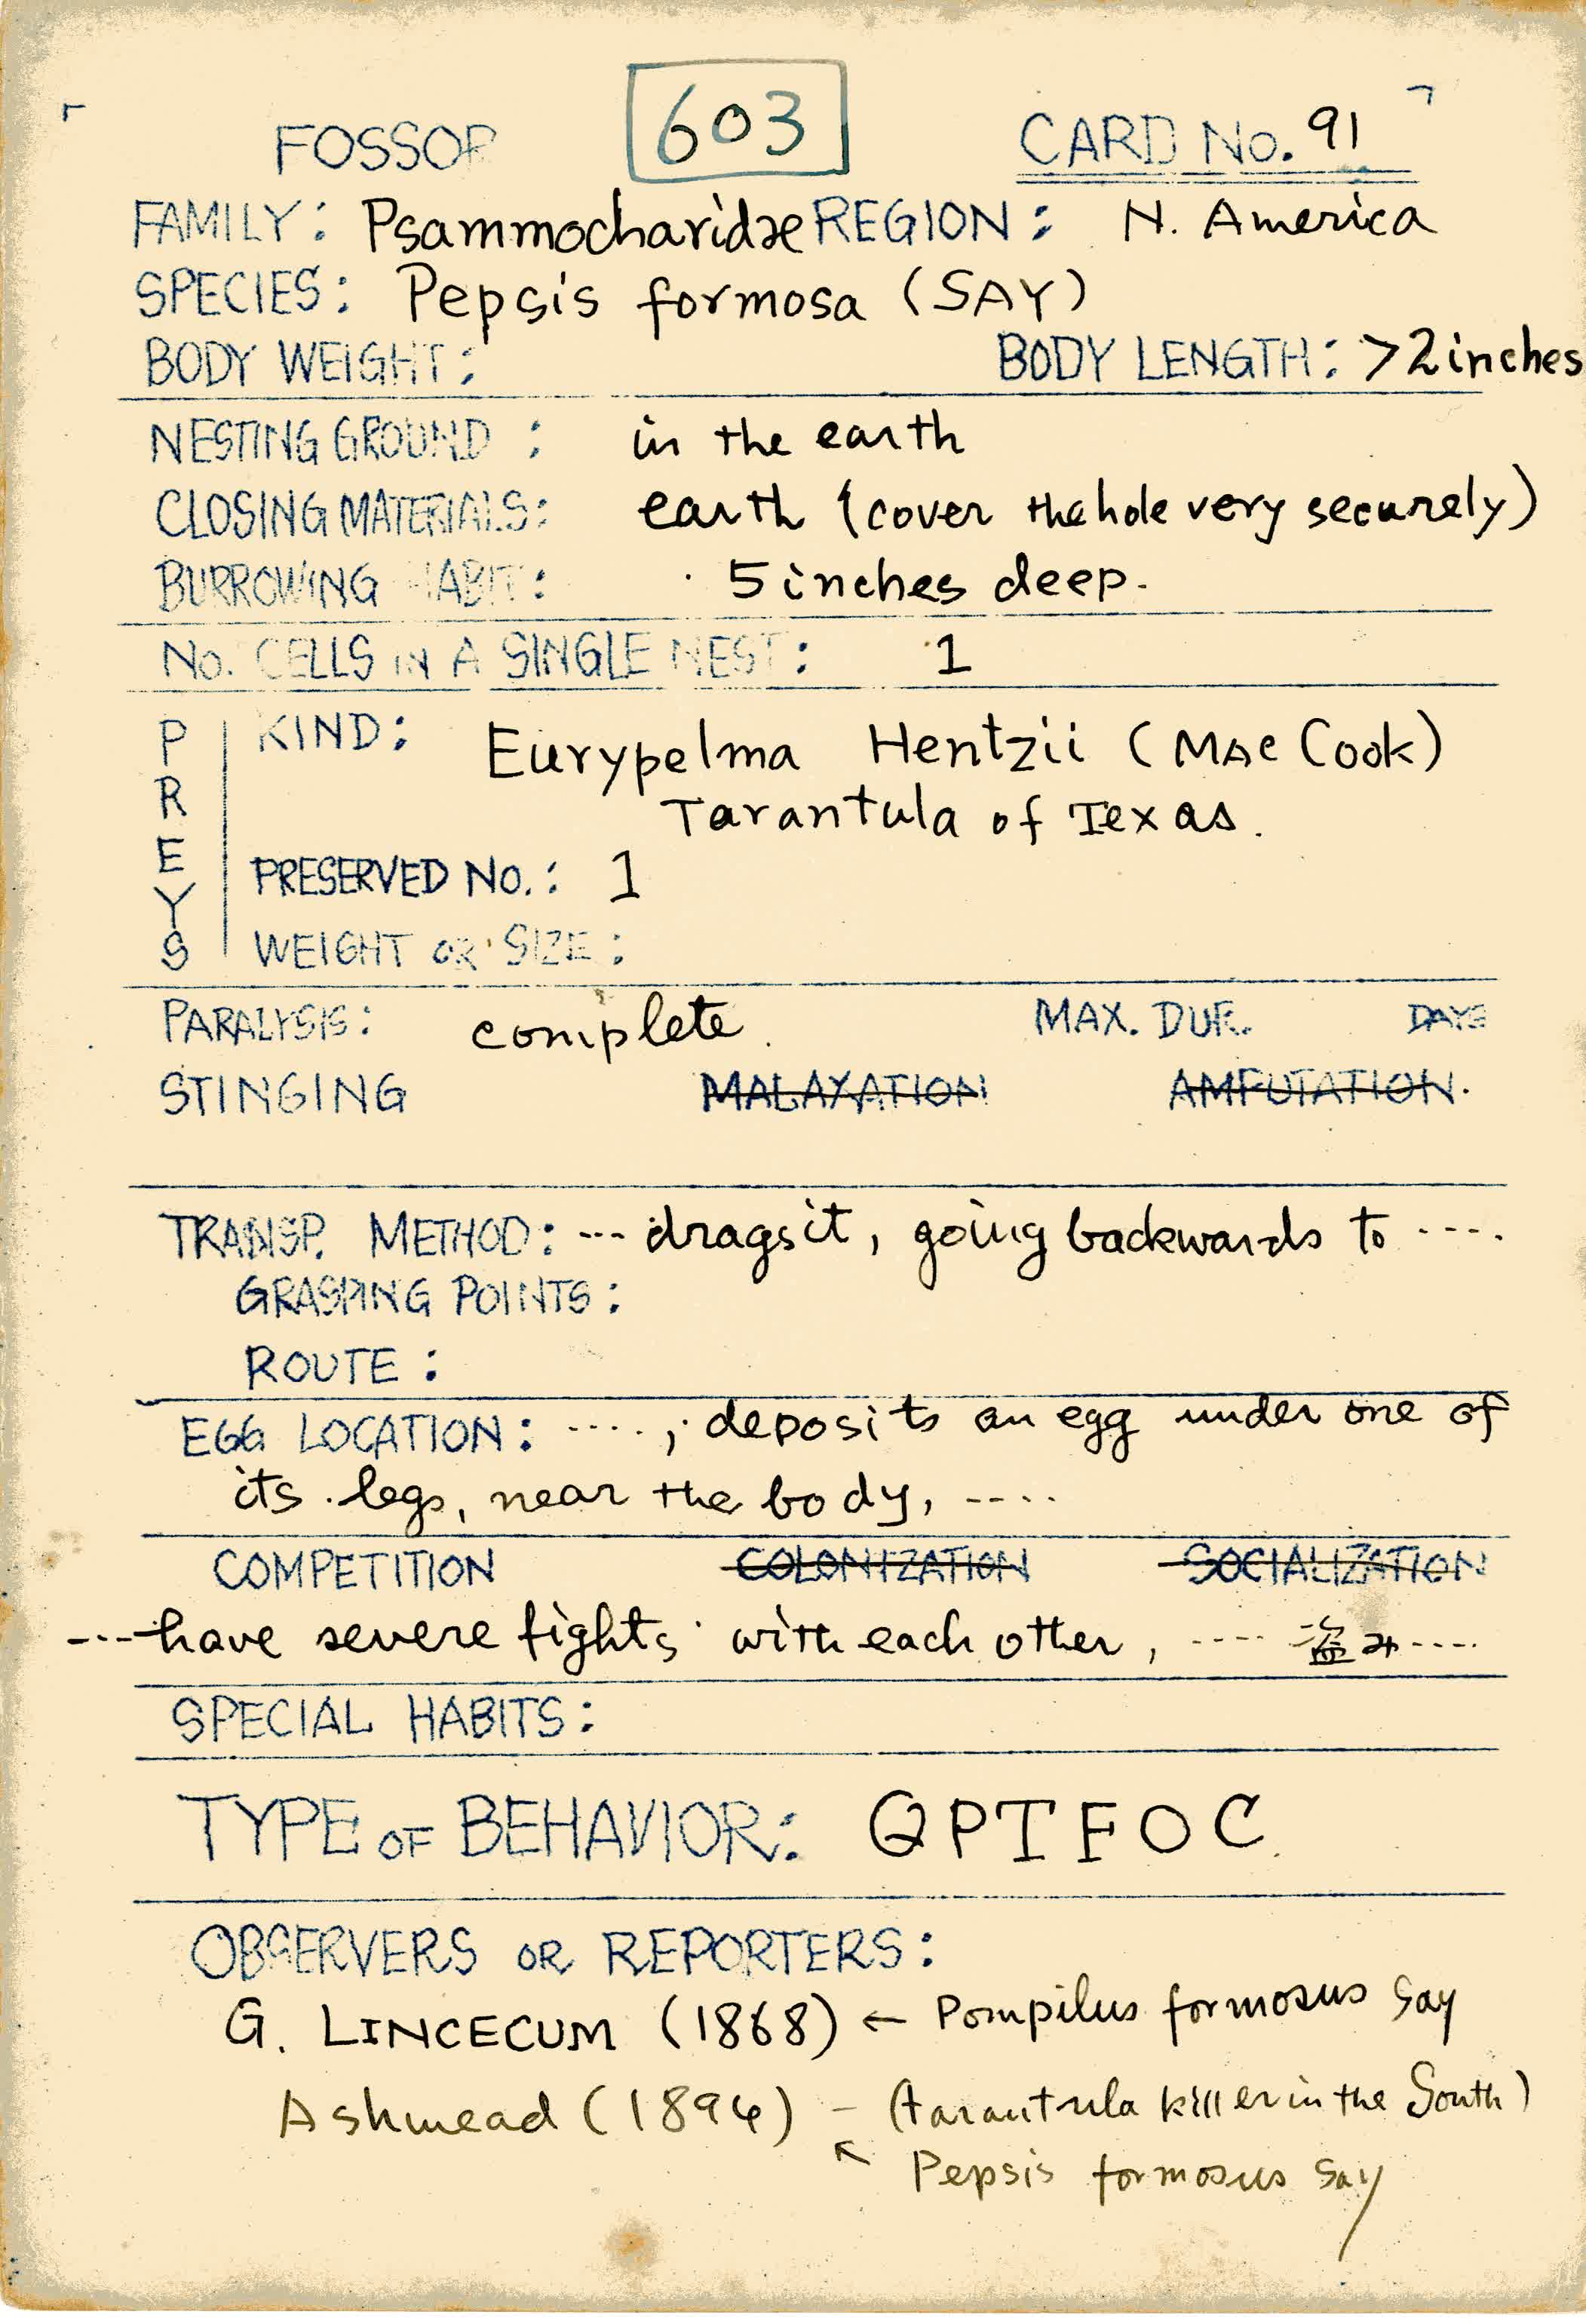 FOSSOR 603 CARD No. 91
FAMILY: Psammocharidæ REGION: N. America
SPECIES: Pepsis formosa (SAY)
BODY WEIGHT: BODY LENGTH: >2 inches
NESTING GROUND: in the earth
CLOSING MATERIALS: earth (cover the hole very securely)
BURROWING HABIT: 5 inches deep.
No. CELLS IN A SINGLE NEST: 1
PREYS
KIND: Eurypelma Hentzii (Mac Cook)
Tarantula of Texas.
PRESERVED NO.: 1
WEIGHT OR SIZE:
PARALYSIS: complete. MAX. DUR. DAYS
STINGING MALAXATION AMPUTATION.
TRANSP. METHOD: --- drags it, going backwards to ----.
GRASPING POINTS:
ROUTE:
EGG LOCATION: ....; deposits an egg under one of
its legs, near the body, ----
COMPETITION COLONIZATION SOCIALIZATION
--- have severe fights with each other, ---- 盗み----
SPECIAL HABITS:
TYPE OF BEHAVIOR: QPTFOC
OBSERVERS OR REPORTERS:
G. LINCECUM (1868) ← Pompilus formosus Say
Ashmead (1894) – (tarantula killer in the South)
↖ Pepsis formosus Say